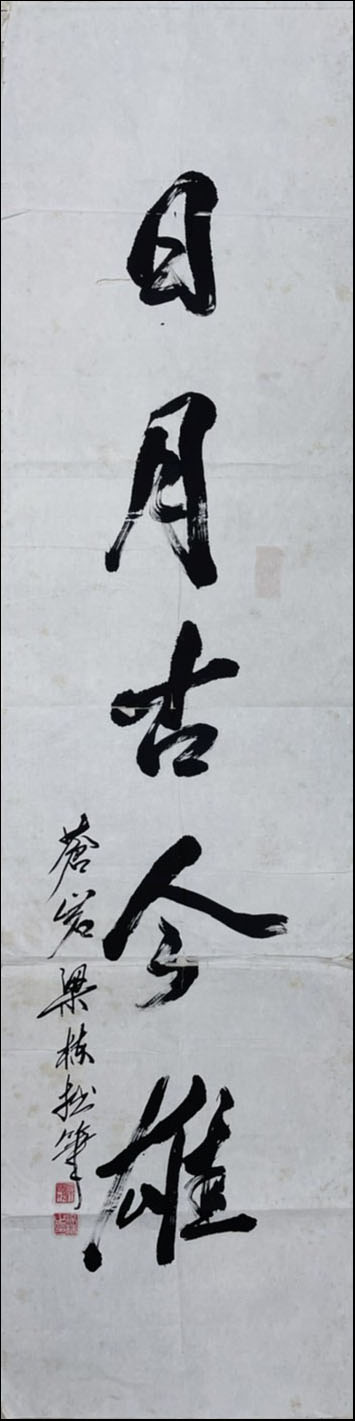 日月古今雄
蒼岩梁棟拙筆